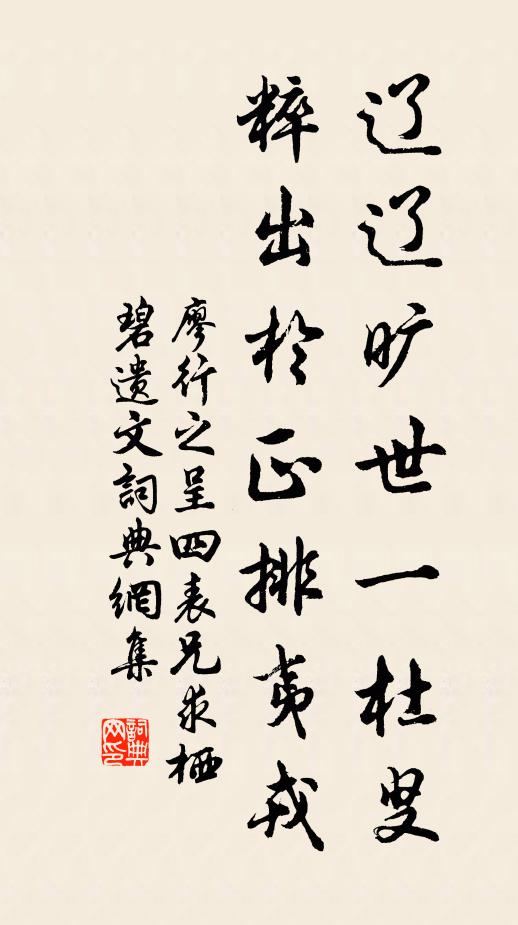 辽辽旷世一杜叟
粹出於正排夷戎
廖行之呈四表兄求栖
碧遗文詞典網集
詞典网印